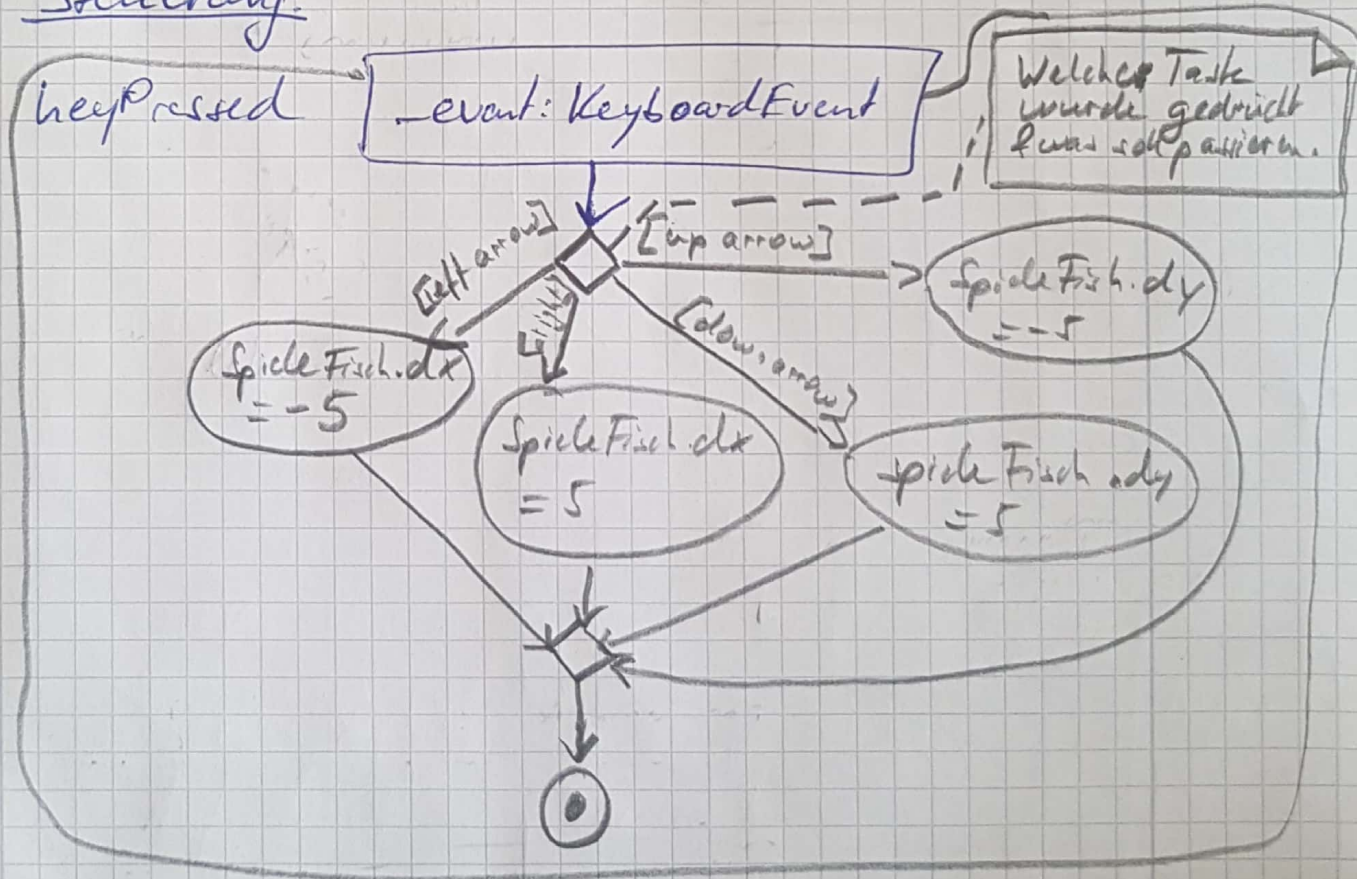 Steuerung:
keyPressed
_event: KeyboardEvent
Welche Taste
wurde gedrückt
& was soll passieren.
[left arrow]
[up arrow]
[right]
[down arrow]
SpieleFisch.dy
= -5
SpieleFisch.dx
= -5
SpieleFisch.dx
= 5
spieleFisch.dy
= 5